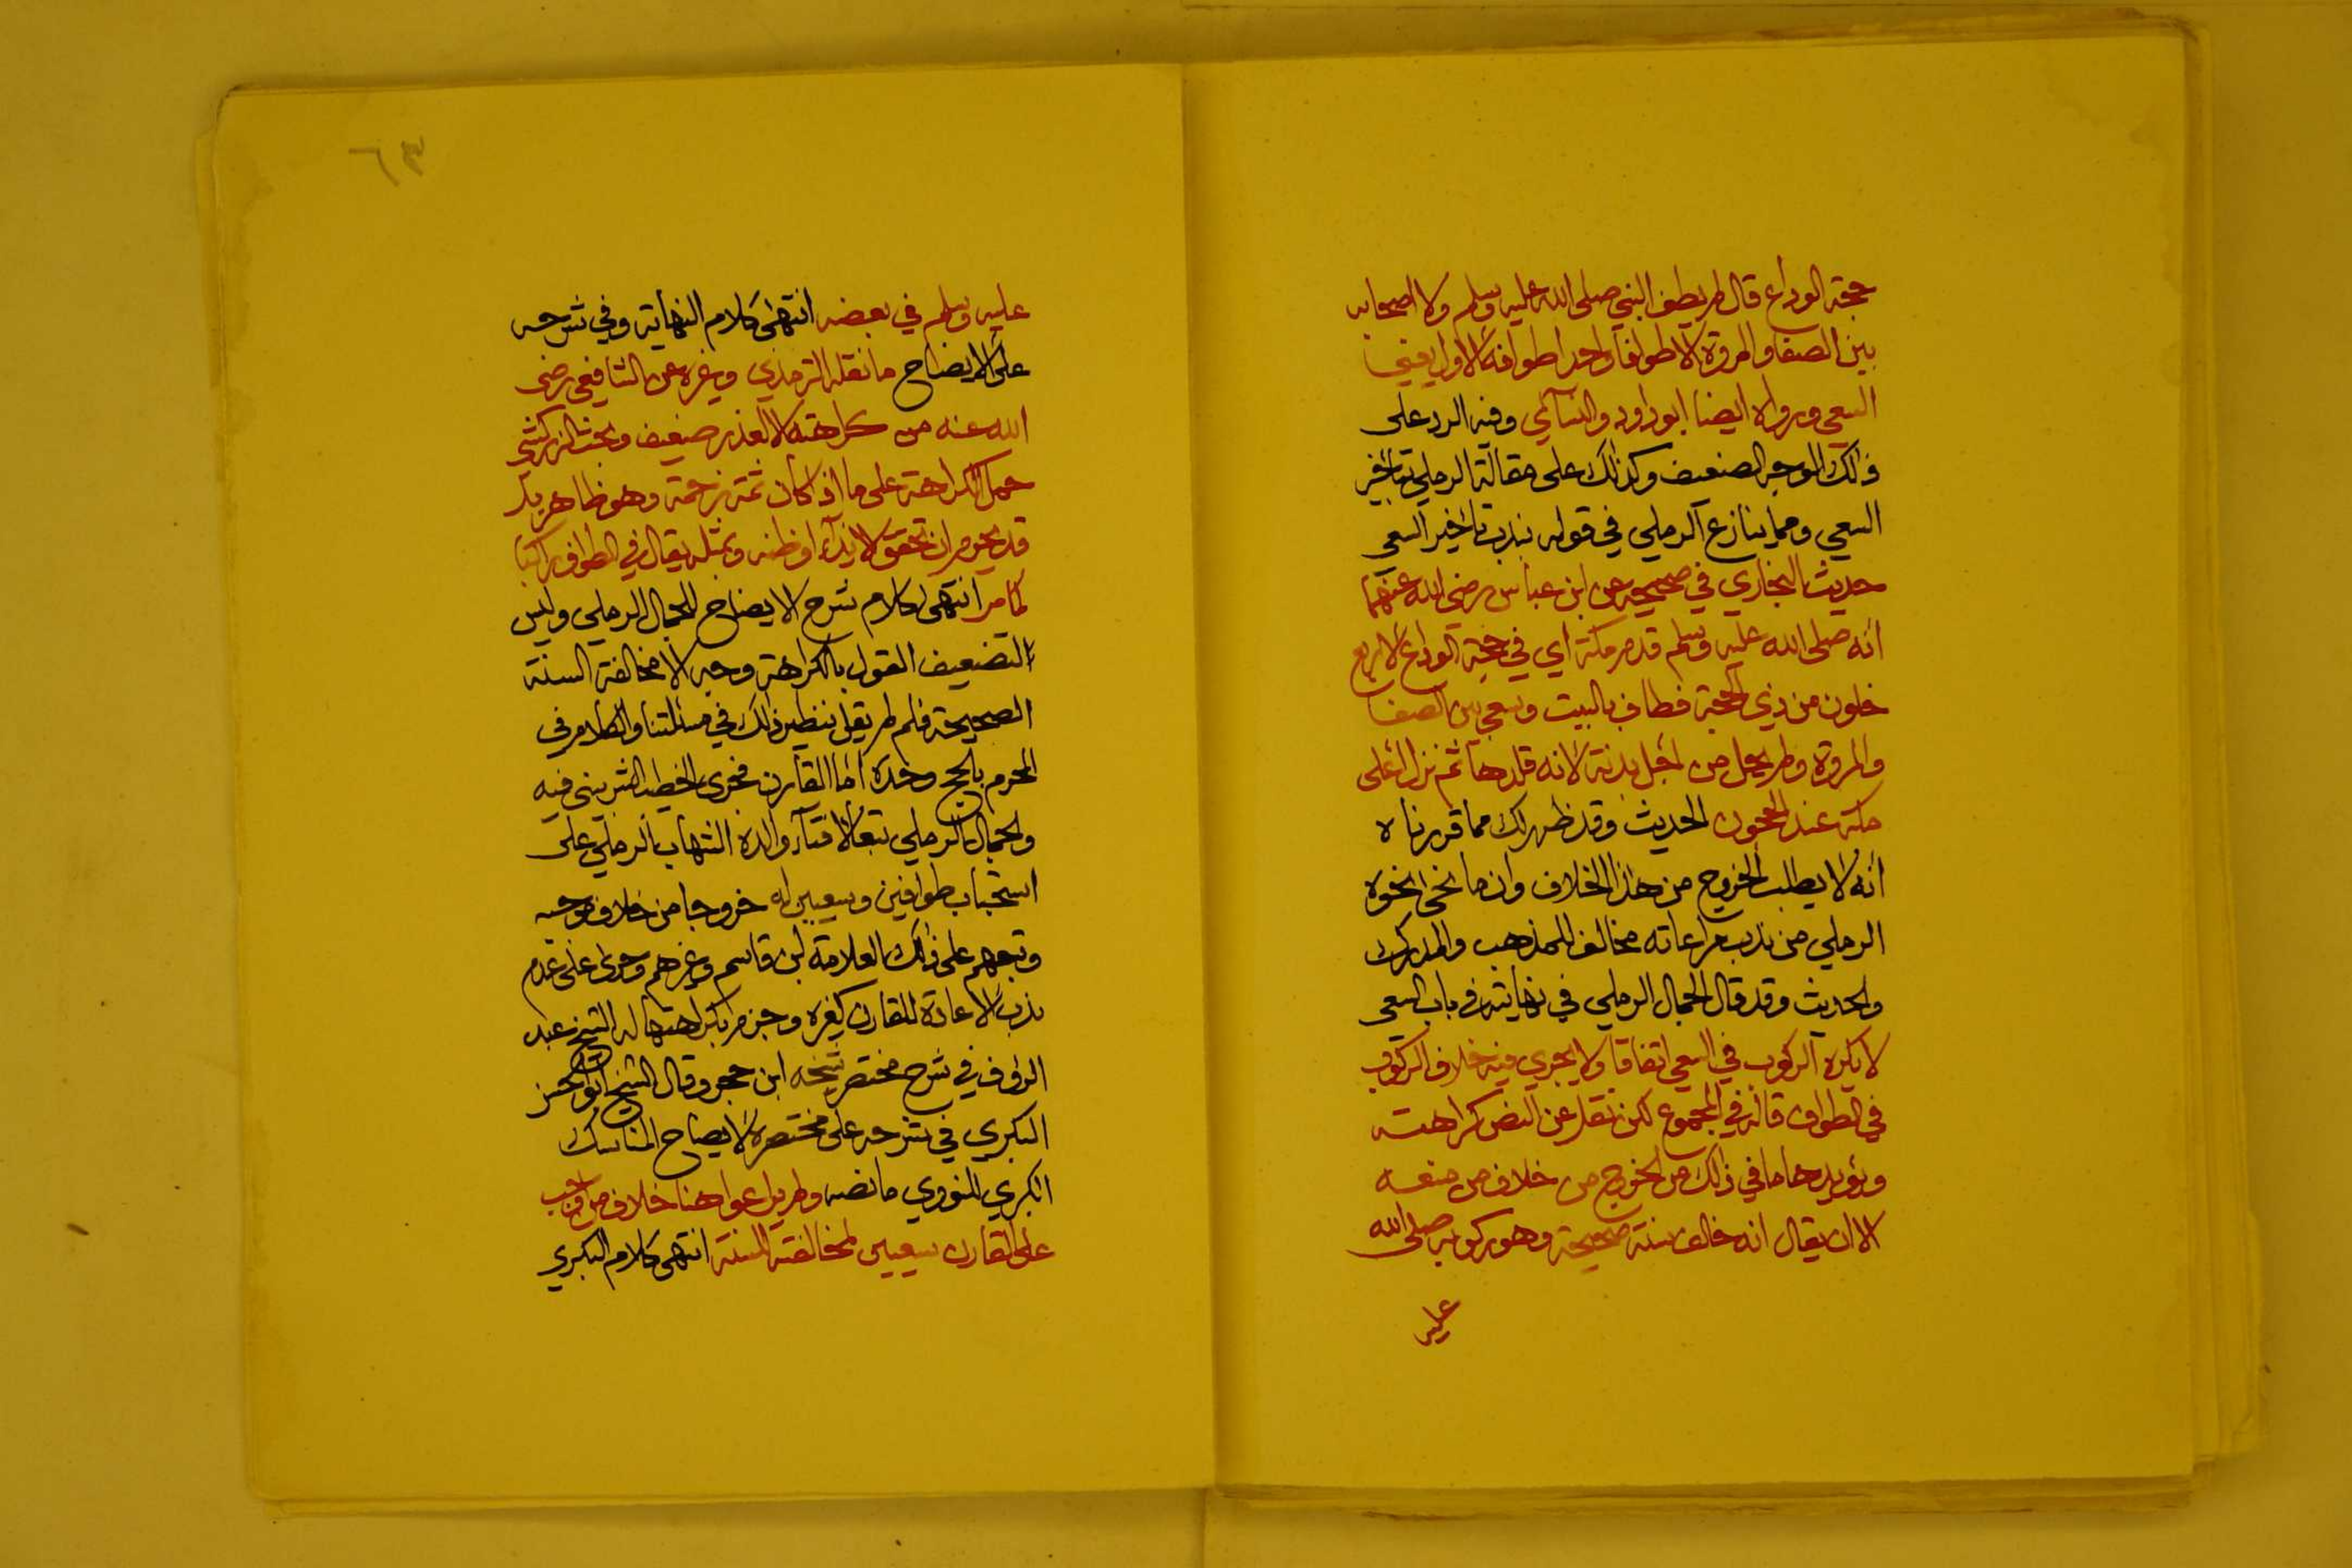 حجة الوداع قال لم يطف النبي صلى الله عليه وسلم ولا اصحابه
بين الصفا والمروة الا طوافا واحدا طوافه الاول يعني
السعي ورواه ايضا ابو داود والنسآئي وفيه الرد على
ذالك الوجه الضعيف وكذلك على مقالة الرملي بتاخير
السعي ومما ينازع الرملي في قوله بندب تاخير السعي
حديث البخاري في صحيحه عن ابن عباس رضي الله عنهما
أنه صلى الله عليه وسلم قدم مكة أي في حجة الوداع لاربع
خلون من ذي الحجة فطاف بالبيت وسعى بين الصفا
والمروة ولم يحل من اجل بدنه لانه قلدها ثم نزل اعلى
مكة عند الحجون الحديث وقد ظهر لك مما قررناه
أنه لا يطلب الخروج من هذا الخلاف وان ما نحى نحوه
الرملي من ندب مراعاته مخالف للمذهب والمدرك
والحديث وقد قال الجمال الرملي في نهايته في باب السعي
لا يكره الركوب في السعي اتفاقا ولا يجري فيه خلاف الركوب
في الطواف قاله في المجموع لكن نقل عن النص كراهته
ويؤيدها ما في ذلك من الخروج من خلاف من منعه
الا ان يقال انه خالف سنة صحيحة وهو ركوبه صلى الله
عليه
٦٣
عليه وسلم في بعضه انتهى كلام النهاية وفي شرحه
على الايضاح ما نقله الترمذي وغيره عن الشافعي رضي
الله عنه من كراهته الا لعذر ضعيف وبحث الزركشي
حمل الكراهة على ما اذ كان ثمة زحمة وهو ظاهر بل
قد يحرم ان تحقق الايذآء او ظنه وبمثله يقال في الطواف راكبا
كما مر انتهى كلام شرح الايضاح للجمال الرملي وليس
لتضعيف القول بالكراهة وجه الا مخالفة السنة
الصحيحة فلم لم يقل بنظير ذلك في مسئلتنا والكلام في
المحرم بالحج وحده أما القارن فجرى الخطيب الشربيني فيه
والجمال الرملي تبعا لافتآء والده الشهاب الرملي على
استحباب طوافين وسعيين له خروجا من خلاف موجبه
وتبعهم على ذلك العلامة ابن قاسم وغيرهم وجرى على عدم
ندب الاعادة للقارن كغيره وجزم بكراهتها له الشيخ عبد
الرؤف في شرح مختصر شيخه ابن حجر وقال الشيخ ابو الحسن
البكري في شرحه على مختصره لايضاح المناسك
الكبرى للنووي ما نصه ولم يراعوا هنا خلاف من اوجب
على القارن سعيين لمخالفته السنة انتهى كلام البكري